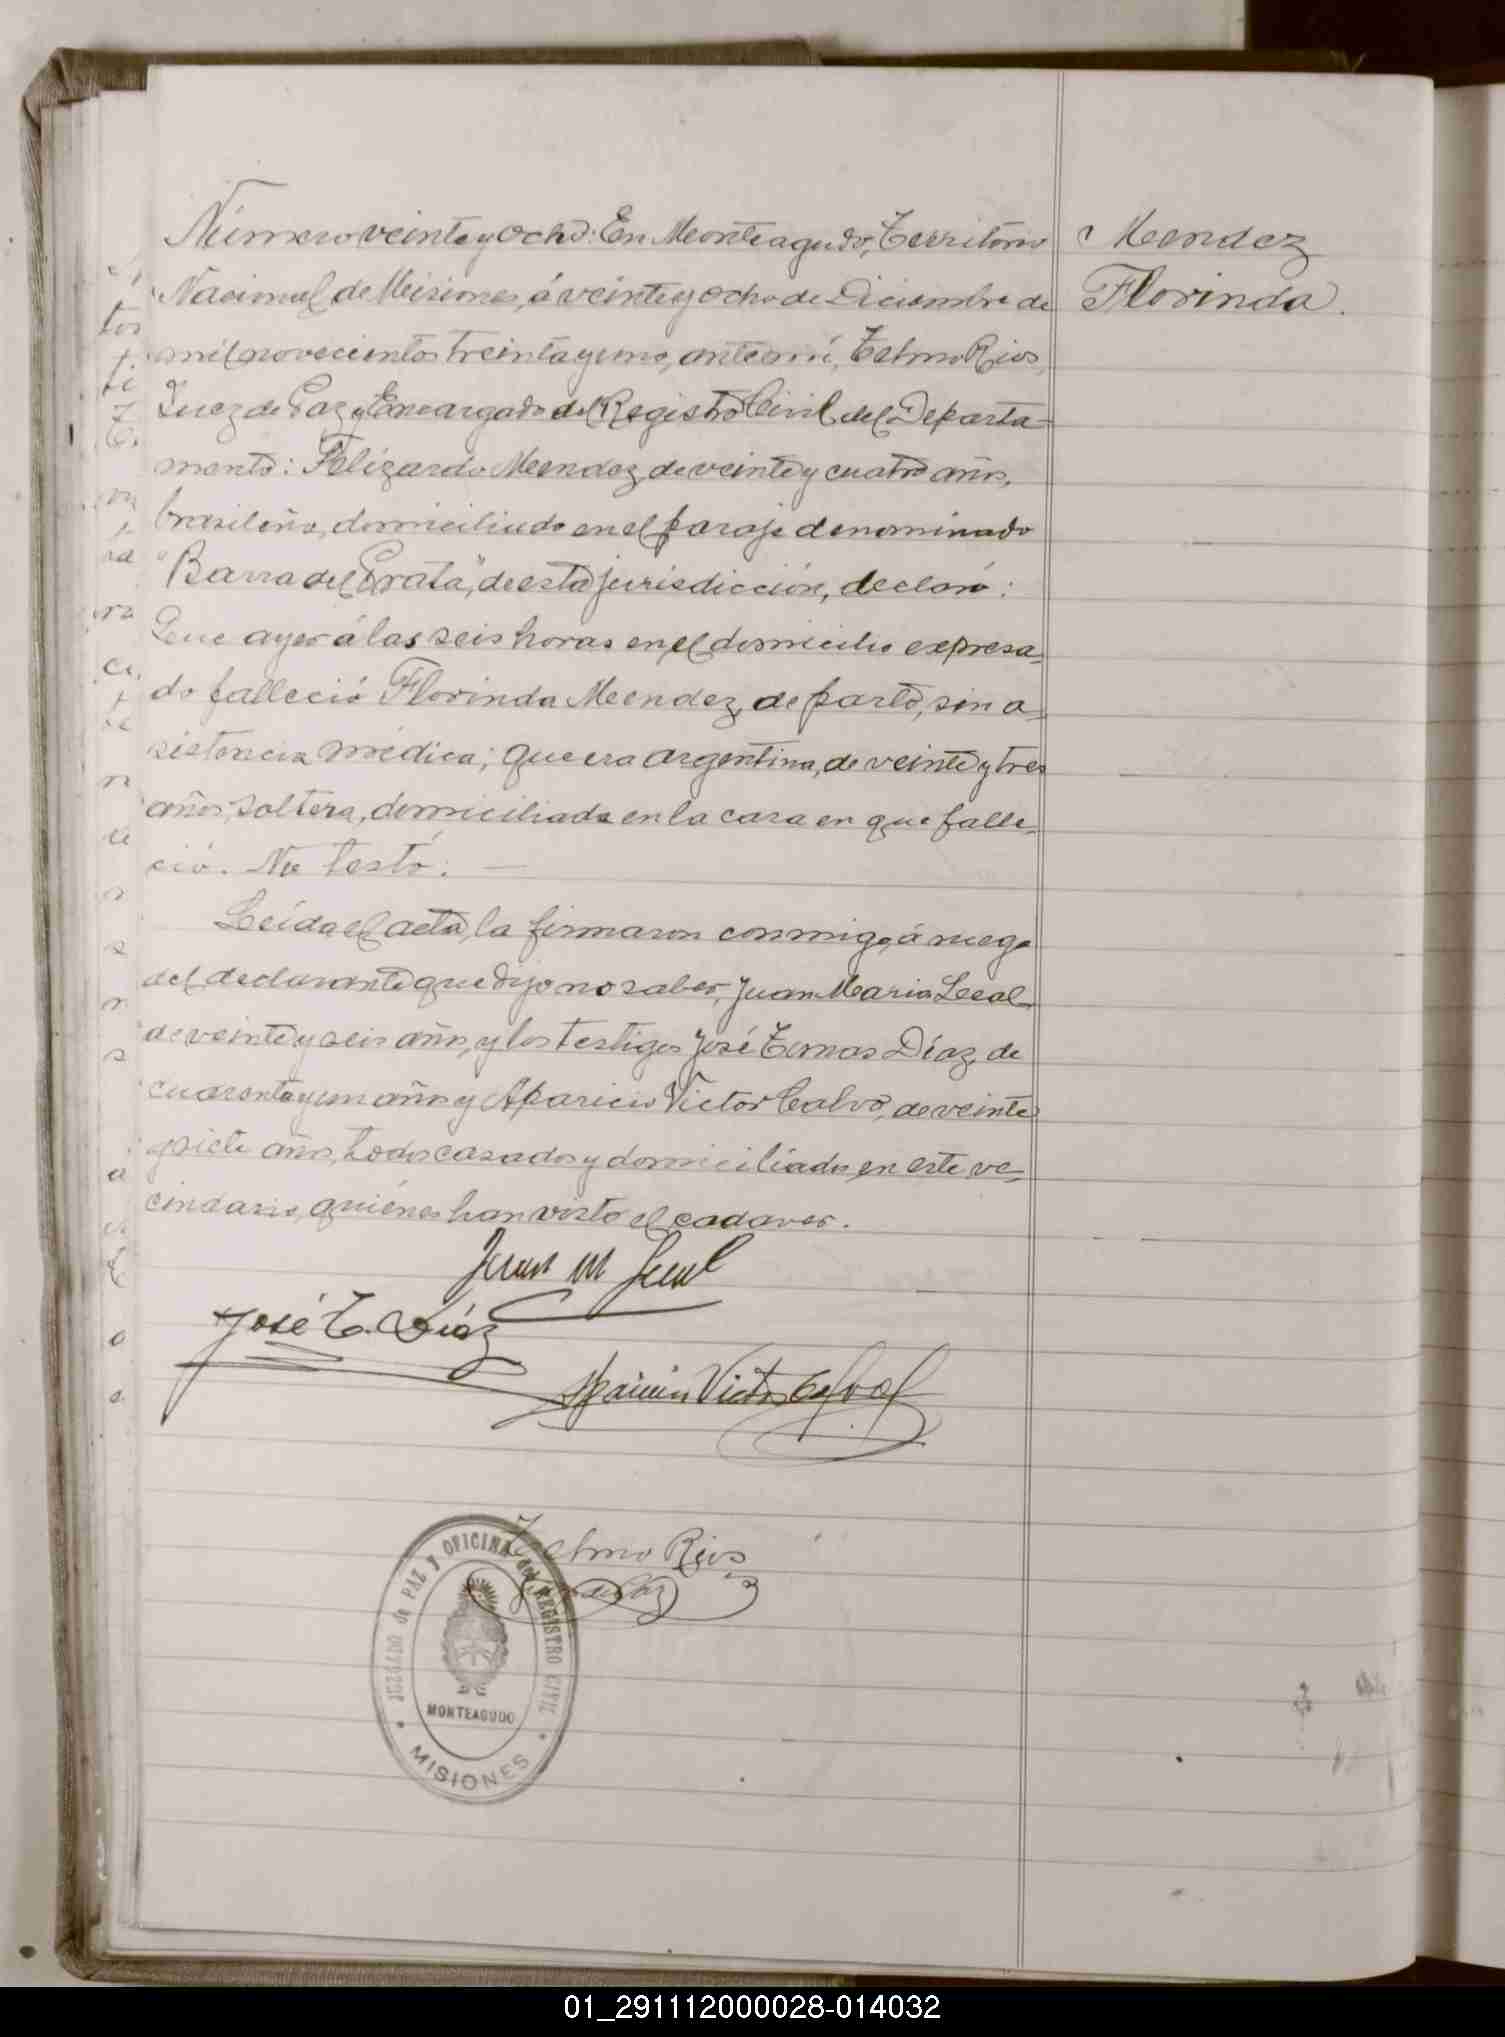 Número veinte y ocho: En Monteagudo, Territorio
Nacional de Misiones, á veinte y ocho de Diciembre de
mil novecientos treinta y uno, ante mí, Telmo Rios,
Juez de Paz y Encargado del Registro Civil del Departa-
mento: Felizardo Mendez, de veinte y cuatro años,
brasileño, domiciliado en el paraje denominado
"Barra del Prata", de esta jurisdicción, declaró:
Que ayer á las seis horas en el domicilio expresa-
do falleció Florinda Mendez, de parto, sin a-
sistencia médica; que era argentina, de veinte y tres
años, soltera, domiciliada en la casa en que falle-
ció. No testó. —
Leída el acta, la firmaron conmigo, á ruego
del declarante que dijo no saber, Juan Maria Leal
de veinte y seis años, y los testigos José Tomas Díaz, de
cuarenta y un años y Aparicio Victor Calvo, de veinte
y siete años, todos casados y domiciliados en este ve-
cindario, quiénes han visto el cadaver.
Mendez
Florinda.
Juan M Leal
José T. Díaz
Aparicio Victor Calvo
Telmo Rios
Juez de Paz
JUZGADO de PAZ Y OFICINA del REGISTRO CIVIL
MONTEAGUDO
MISIONES
01_291112000028-014032